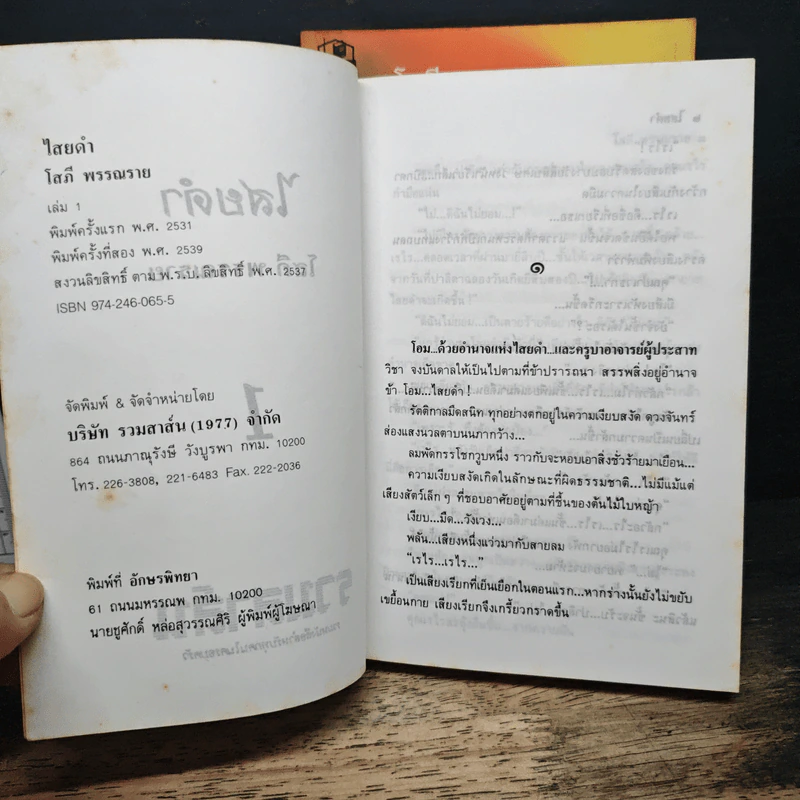 ไสยดำ
โสภี พรรณราย
เล่ม 1
พิมพ์ครั้งแรก พ.ศ. 2531
พิมพ์ครั้งที่สอง พ.ศ. 2539
สงวนลิขสิทธิ์ ตาม พ.ร.บ. ลิขสิทธิ์ พ.ศ. 2537
ISBN 974-246-065-5
จัดพิมพ์ & จัดจำหน่ายโดย
บริษัท รวมสาส์น (1977) จำกัด
864 ถนนภาณุรังษี วังบูรพา กทม. 10200
โทร. 226-3808, 221-6483 Fax. 222-2036
พิมพ์ที่ อักษรพิทยา
61 ถนนมหรรณพ กทม. 10200
นายชูศักดิ์ หล่อสุวรรณศิริ ผู้พิมพ์ผู้โฆษณา
๑
โอม...ด้วยอำนาจแห่งไสยดำ...และครูบาอาจารย์ผู้ประสาท
วิชา จงบันดาลให้เป็นไปตามที่ข้าปรารถนา สรรพสิ่งอยู่อำนาจ
ข้า โอม...ไสยดำ !
รัตติกาลมืดสนิท ทุกอย่างตกอยู่ในความเงียบสงัด ดวงจันทร์
ส่องแสงนวลตาบนนภากว้าง...
ลมพัดกรรโชกวูบหนึ่ง ราวกับจะหอบเอาสิ่งชั่วร้ายมาเยือน...
ความเงียบสงัดเกิดในลักษณะที่ผิดธรรมชาติ...ไม่มีแม้แต่
เสียงสัตว์เล็ก ๆ ที่ชอบอาศัยอยู่ตามที่ชื้นของต้นไม้ใบหญ้า
เงียบ...มืด...วังเวง...
พลัน...เสียงหนึ่งแว่วมากับสายลม
“เรไร...เรไร...”
เป็นเสียงเรียกที่เย็นเยือกในตอนแรก...หากร่างนั้นยังไม่ขยับ
เขยื้อนกาย เสียงเรียกจึงเกรี้ยวกราดขึ้น